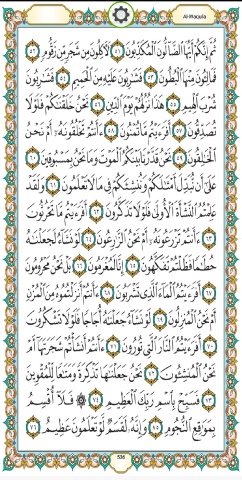 Al-Waqu'a
ثُمَّ إِنَّكُمْ أَيُّهَا ٱلضَّآلُّونَ ٱلْمُكَذِّبُونَ ٥١ لَءَاكِلُونَ مِن شَجَرٍ مِّن زَقُّومٍ ٥٢
فَمَالِـُٔونَ مِنْهَا ٱلْبُطُونَ ٥٣ فَشَٰرِبُونَ عَلَيْهِ مِنَ ٱلْحَمِيمِ ٥٤ فَشَٰرِبُونَ
شُرْبَ ٱلْهِيمِ ٥٥ هَٰذَا نُزُلُهُمْ يَوْمَ ٱلدِّينِ ٥٦ نَحْنُ خَلَقْنَٰكُمْ فَلَوْلَا
تُصَدِّقُونَ ٥٧ أَفَرَءَيْتُم مَّا تُمْنُونَ ٥٨ ءَأَنتُمْ تَخْلُقُونَهُۥٓ أَمْ نَحْنُ
ٱلْخَٰلِقُونَ ٥٩ نَحْنُ قَدَّرْنَا بَيْنَكُمُ ٱلْمَوْتَ وَمَا نَحْنُ بِمَسْبُوقِينَ ٦٠
عَلَىٰٓ أَن نُّبَدِّلَ أَمْثَٰلَكُمْ وَنُنشِئَكُمْ فِى مَا لَا تَعْلَمُونَ ٦١ وَلَقَدْ
عَلِمْتُمُ ٱلنَّشْأَةَ ٱلْأُولَىٰ فَلَوْلَا تَذَكَّرُونَ ٦٢ أَفَرَءَيْتُم مَّا تَحْرُثُونَ
٦٣ ءَأَنتُمْ تَزْرَعُونَهُۥٓ أَمْ نَحْنُ ٱلزَّٰرِعُونَ ٦٤ لَوْ نَشَآءُ لَجَعَلْنَٰهُ
حُطَٰمًا فَظَلْتُمْ تَفَكَّهُونَ ٦٥ إِنَّا لَمُغْرَمُونَ ٦٦ بَلْ نَحْنُ مَحْرُومُونَ
٦٧ أَفَرَءَيْتُمُ ٱلْمَآءَ ٱلَّذِى تَشْرَبُونَ ٦٨ ءَأَنتُمْ أَنزَلْتُمُوهُ مِنَ ٱلْمُزْنِ
أَمْ نَحْنُ ٱلْمُنزِلُونَ ٦٩ لَوْ نَشَآءُ جَعَلْنَٰهُ أُجَاجًا فَلَوْلَا تَشْكُرُونَ
٧٠ أَفَرَءَيْتُمُ ٱلنَّارَ ٱلَّتِى تُورُونَ ٧١ ءَأَنتُمْ أَنشَأْتُمْ شَجَرَتَهَآ أَمْ
نَحْنُ ٱلْمُنشِـُٔونَ ٧٢ نَحْنُ جَعَلْنَٰهَا تَذْكِرَةً وَمَتَٰعًا لِّلْمُقْوِينَ
٧٣ فَسَبِّحْ بِٱسْمِ رَبِّكَ ٱلْعَظِيمِ ٧٤ ۞ فَلَآ أُقْسِمُ
بِمَوَٰقِعِ ٱلنُّجُومِ ٧٥ وَإِنَّهُۥ لَقَسَمٌ لَّوْ تَعْلَمُونَ عَظِيمٌ ٧٦
536